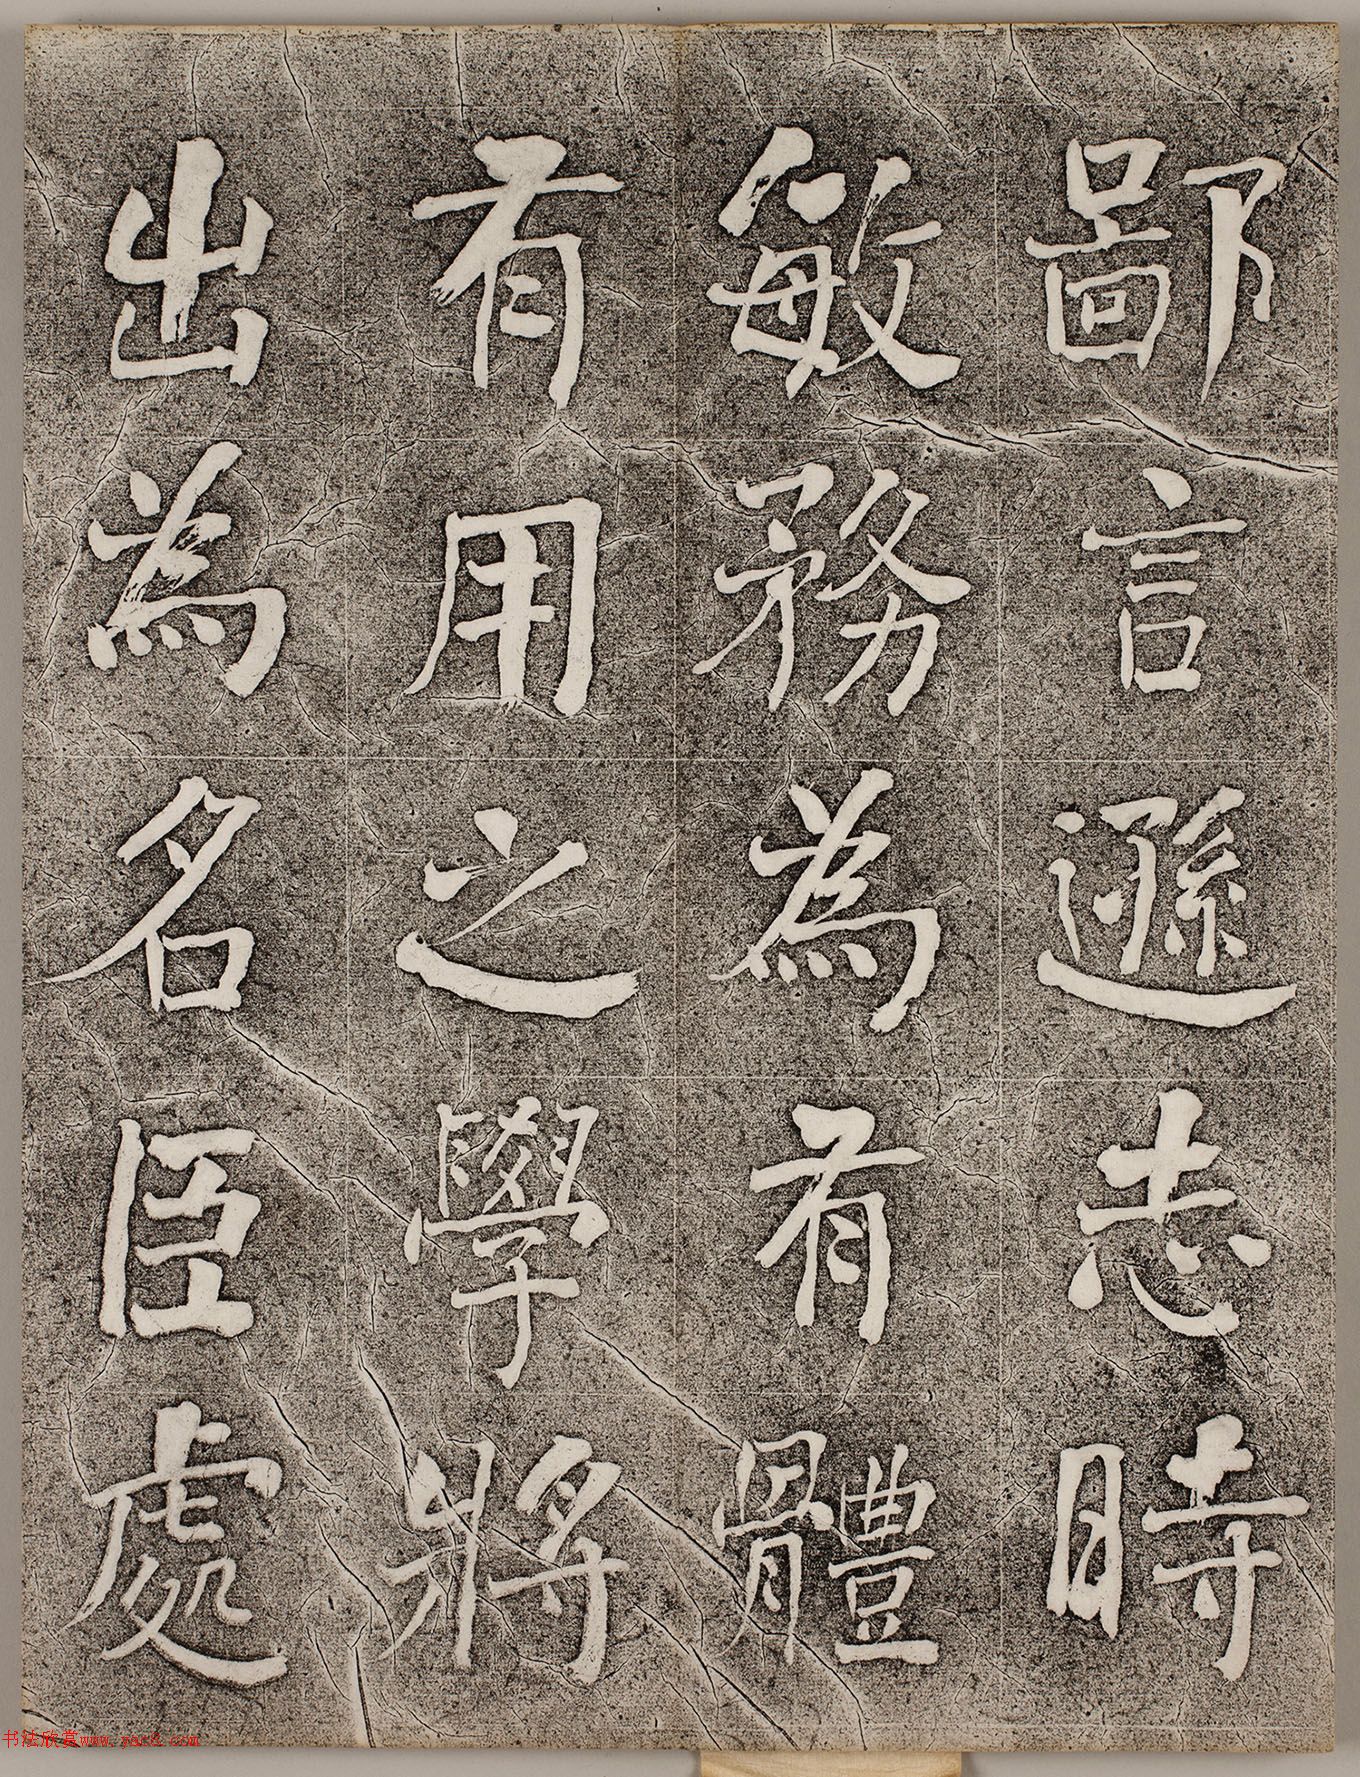 鄙言遜志時
敏務為有體
有用之學將
出為名臣處
书法欣赏www.yac8.com